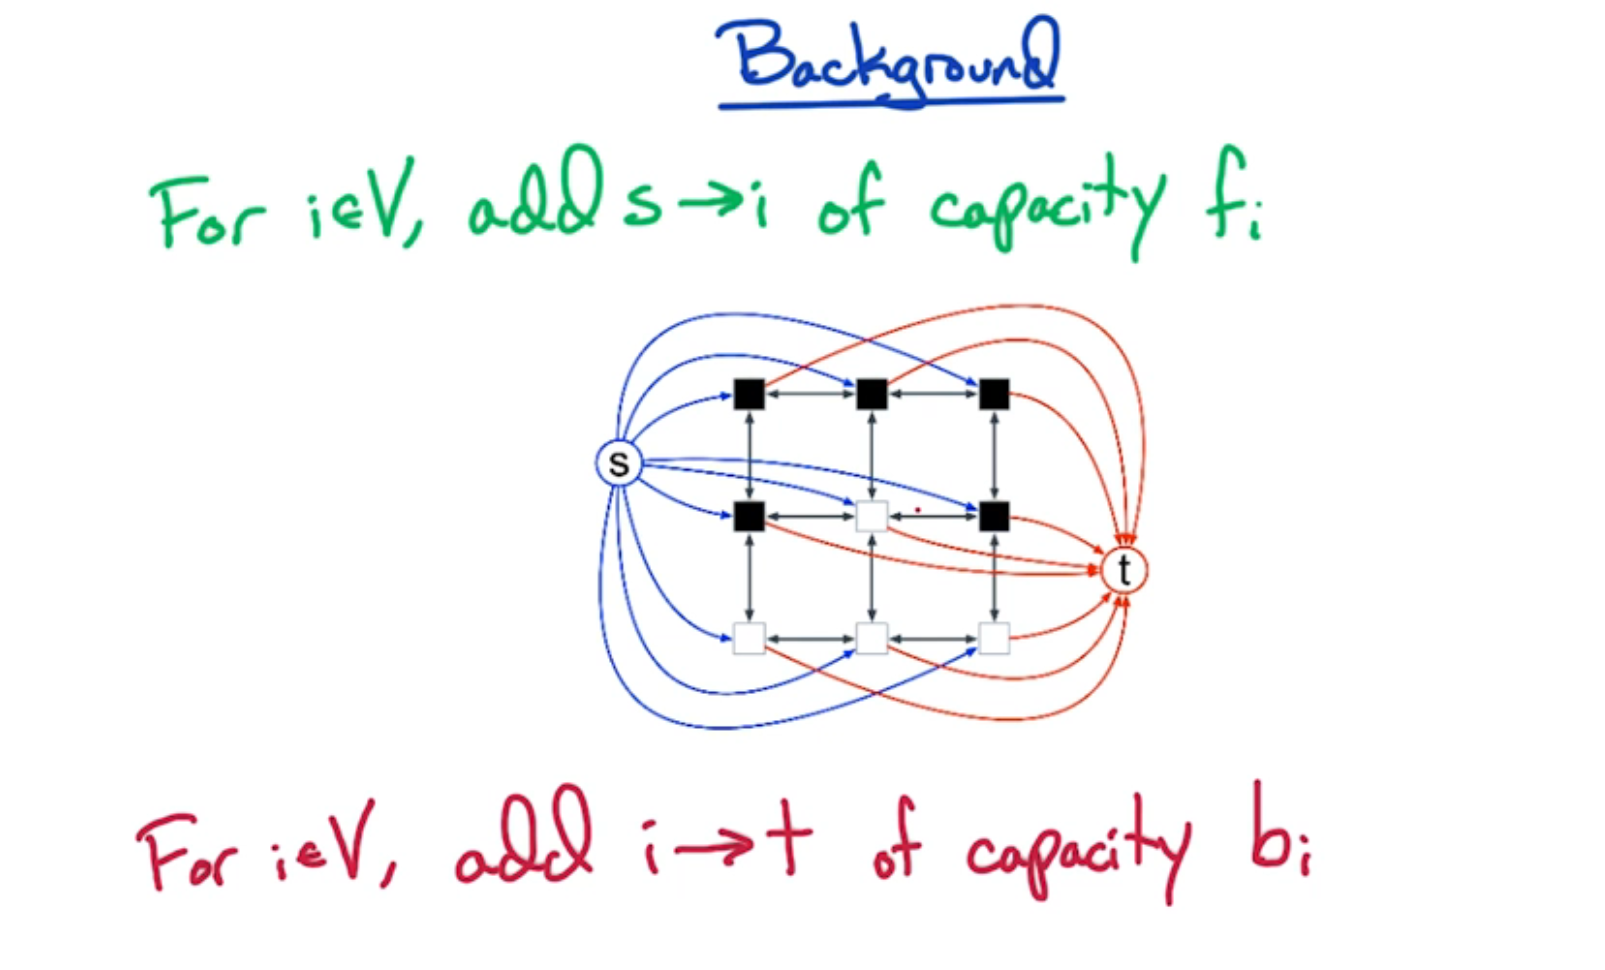 Background
For i∈V, add s→i of capacity fᵢ
s
t
For i∈V, add i→t of capacity bᵢ